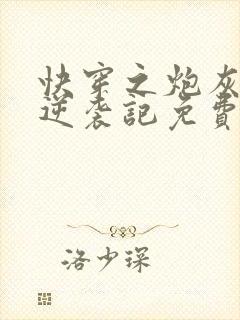 快穿之炮灰
逆袭記免費
洛少琛